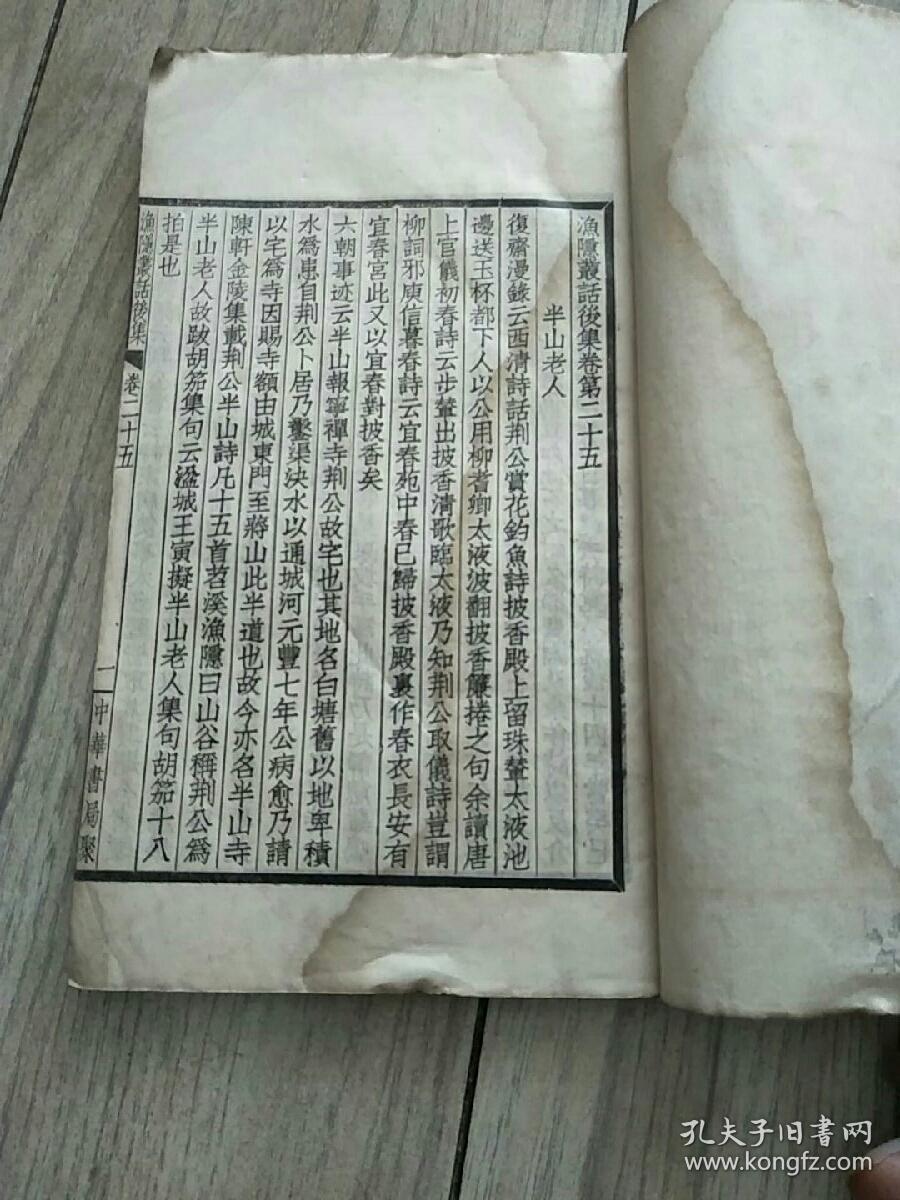 漁隱叢話後集卷第二十五
半山老人
復齋漫錄云西清詩話荆公賞花釣魚詩披香殿上留珠輦太液池
邊送玉杯都下人以公用柳耆卿太液波翻披香簾捲之句余讀唐
上官儀初春詩云步輦出披香清歌臨太液乃知荆公取儀詩豈謂
柳詞邪庾信暮春詩云宜春苑中春已歸披香殿裏作春衣長安有
宜春宮此又以宜春對披香矣
六朝事迹云半山報寧禪寺荆公故宅也其地名白塘舊以地卑積
水爲患自荆公卜居乃鑿渠決水以通城河元豐七年公病愈乃請
以宅爲寺因賜寺額由城東門至蔣山此半道也故今亦名半山寺
陳軒金陵集載荆公半山詩凡十五首苕溪漁隱曰山谷稱荆公爲
半山老人故跋胡笳集句云湓城王寅擬半山老人集句胡笳十八
拍是也
漁隱叢話後集 卷二十五 一 中華書局聚
孔夫子旧书网
www.kongfz.com